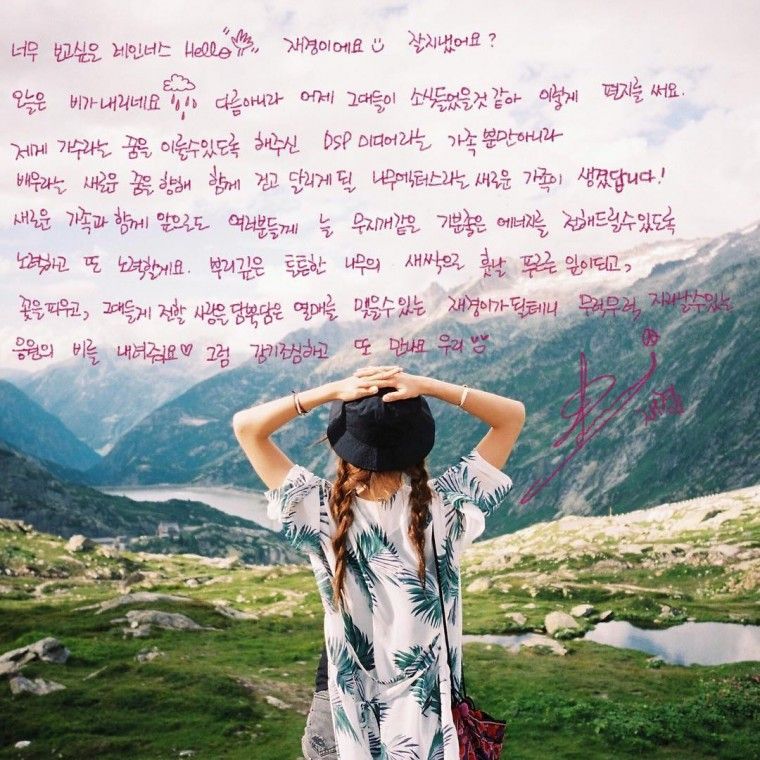 너무 보고싶은 레인너스 Hello 재경이에요 잘지냈어요?
오늘은 비가내리네요 다름아니라 어제 그대들이 소식들었을것 같아 이렇게 편지를 써요.
제게 가수라는 꿈을 이룰수있도록 해주신 DSP미디어라는 가족 뿐만아니라
배우라는 새로운 꿈을 향해 함께 걷고 달리게 될 나무엑터스라는 새로운 가족이 생겼답니다!
새로운 가족과 함께 앞으로도 여러분들께 늘 무지개같은 기분좋은 에너지를 전해드릴수있도록
노력하고 또 노력할게요. 뿌리깊은 튼튼한 나무의 새싹으로 훗날 푸르른 잎이되고,
꽃을피우고, 그대들께 전할 사랑을 담뿍담은 열매를 맺을수있는 재경이가 될테니 무럭무럭 자라날수있는
응원의 비를 내려줘요♡ 그럼 감기조심하고 또 만나요 우리
재경